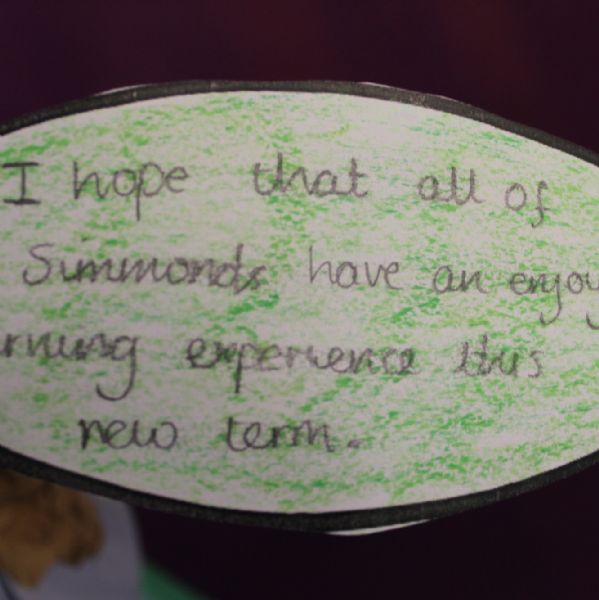 I hope that all of
Simmonds have an enjoy
rning experience this
new term.